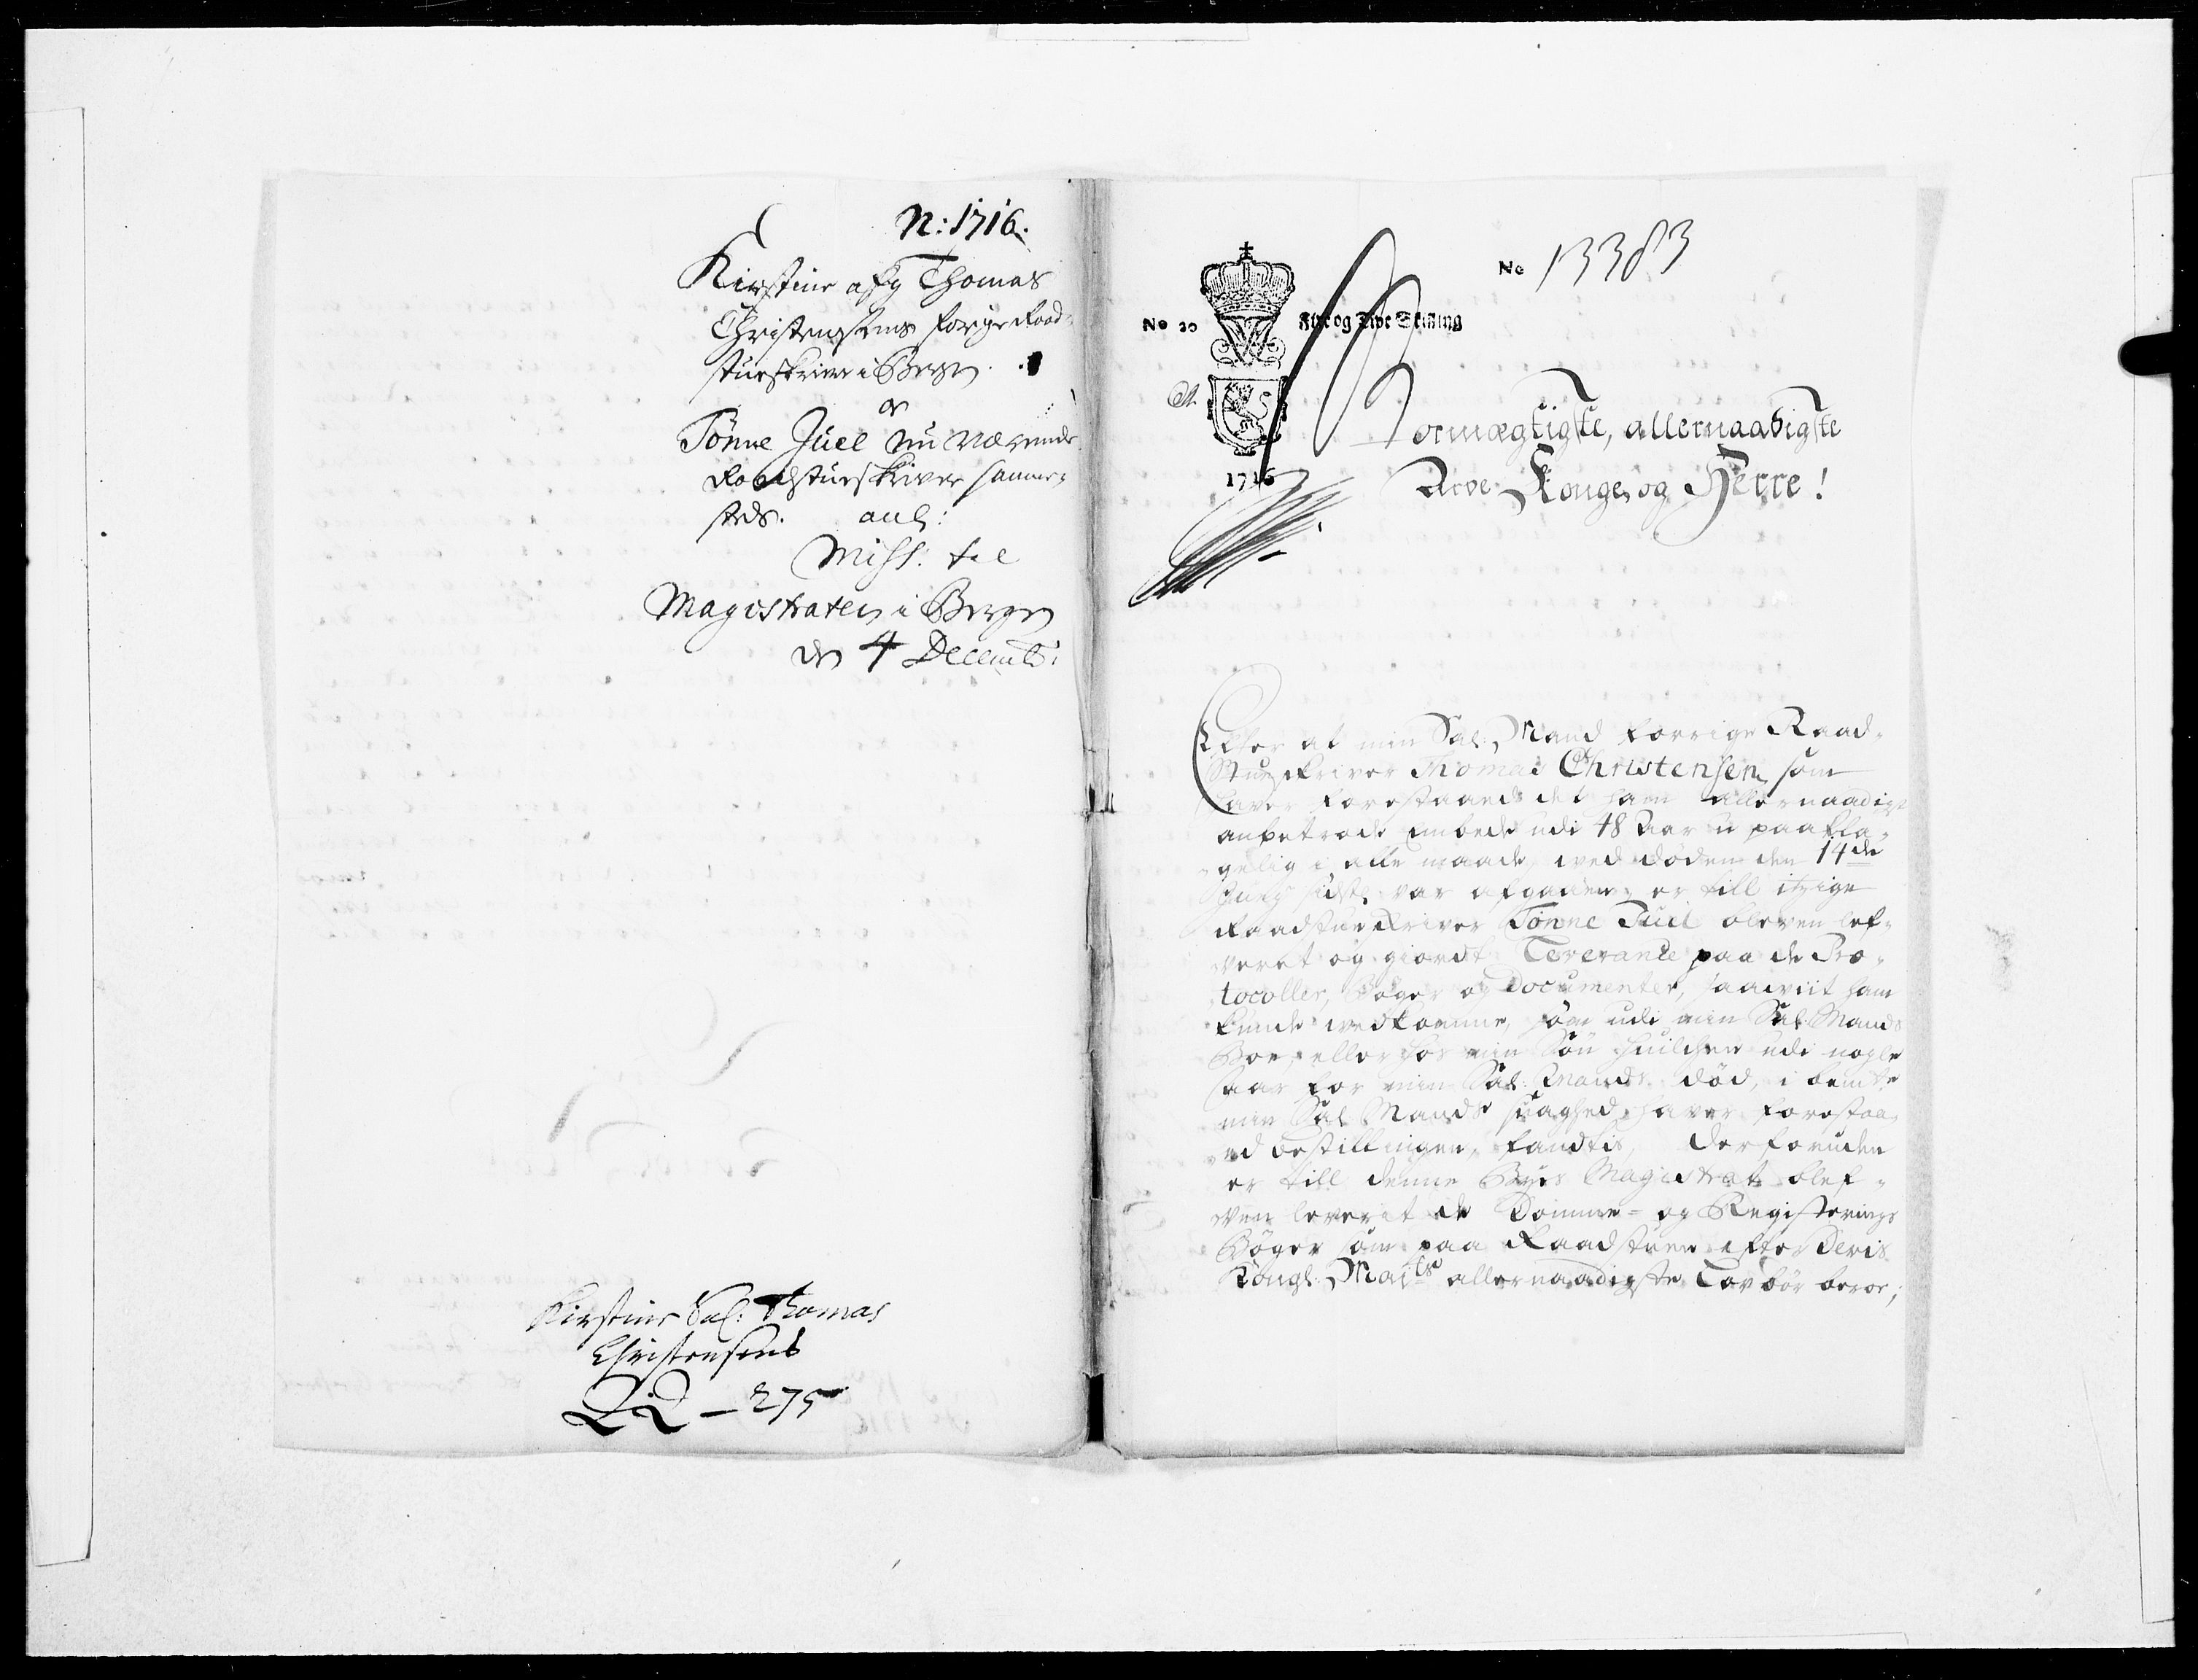 N: 1716.
Kirstine afg Thomas
Christensens forige Raad-
stueskriver i Bergen.
og
Tönne Juel nu værende
Raadstueskriver samme-
steds. anl:
Miss: til
Magistraten i Bergen
den 4 Decemb:
Kirstine Sal: Thomas
Christensens
275
No 13383
No 20 Fire og Tive Skilling
1716
Stormægtigste, allernaadigste
Arve Konge og Herre!
Efter at min Sal: Mand forrige Raad-
Stueskriver Thomas Christensen som
haver forestaaed det ham allernaadigst
anbetroede Embede udi 48 Aar u paakla-
gelig i alle maade, ved döden den 14de
sidstl: var afgangen, er till itzige
Raadstueskriver Tönne Juel bleven lef-
veret og giordt Leverance paa de Pro-
tocoller, Böger og Documenter, saaviit ham
kunde vedkomme, som udi min Sal: Mands
Boe, eller hos min Sön huilchen udi nogle
aar for min Sal: Mands död, i bemte
min Sal: Mands svaghed haver forestaa-
ed bestillingen, fandtis, Derforuden
er till denne Byes Magistrat blef-
ven leverit de Domme- og Registerings
Böger som paa Raadstuen efter Deris
Kongl: Maits allernaadigste Lov bör beroe;